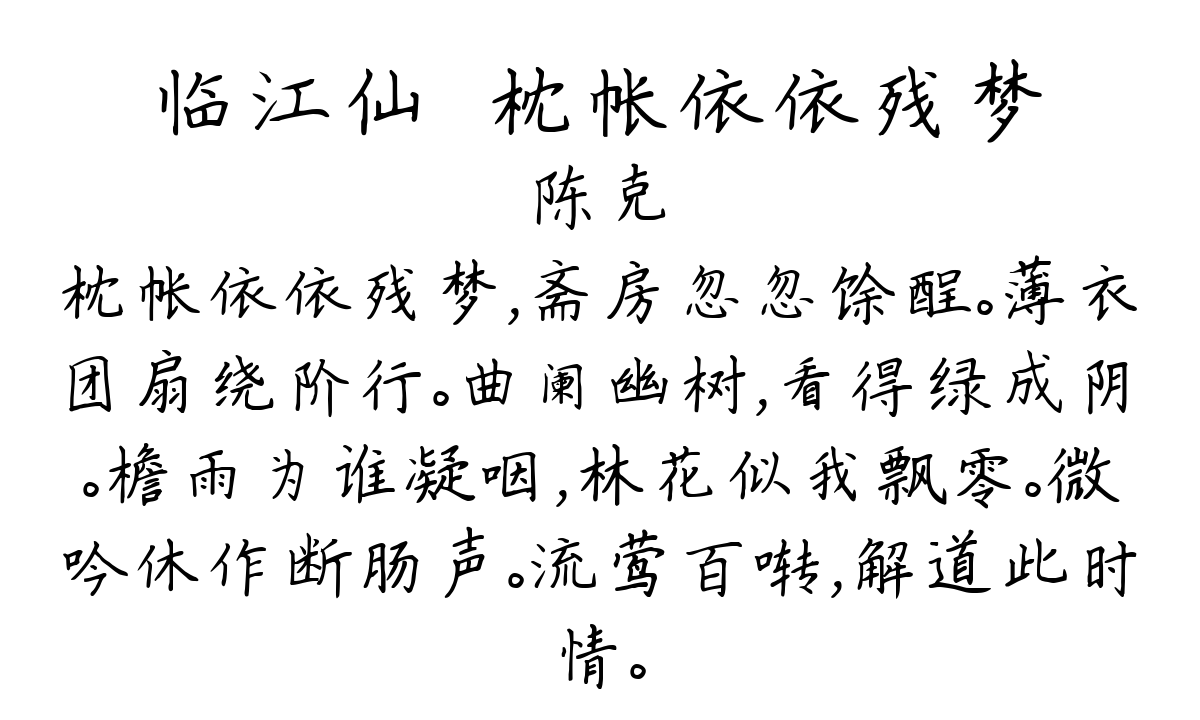 临江仙 枕帐依依残梦
陈克
枕帐依依残梦,斋房忽忽馀酲。薄衣
团扇绕阶行。曲阑幽树,看得绿成阴
。檐雨为谁凝咽,林花似我飘零。微
吟休作断肠声。流莺百啭,解道此时
情。